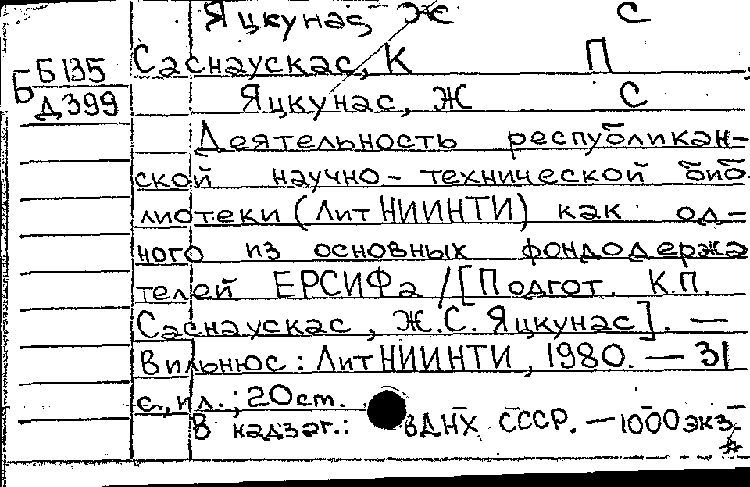 Яцкунас Ж С
Саснаускас, К П
Б Б135
Д399
Яцкунас, Ж С
Деятельность республикан-
ской научно-технической биб
лиотеки (ЛитНИИНТИ) как од-
ного из основных фондодержа
телей ЕРСИФа /[Подгот. К.П.
Саснаускас, Ж.С. Яцкунас]. —
Вильнюс: ЛитНИИНТИ, 1980. — 31
с., ил.; 20 ст.
В надзаг.: ВДНХ СССР. — 1000 экз.